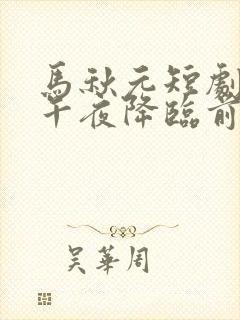 馬秋元短劇
午夜降臨前
吴華周